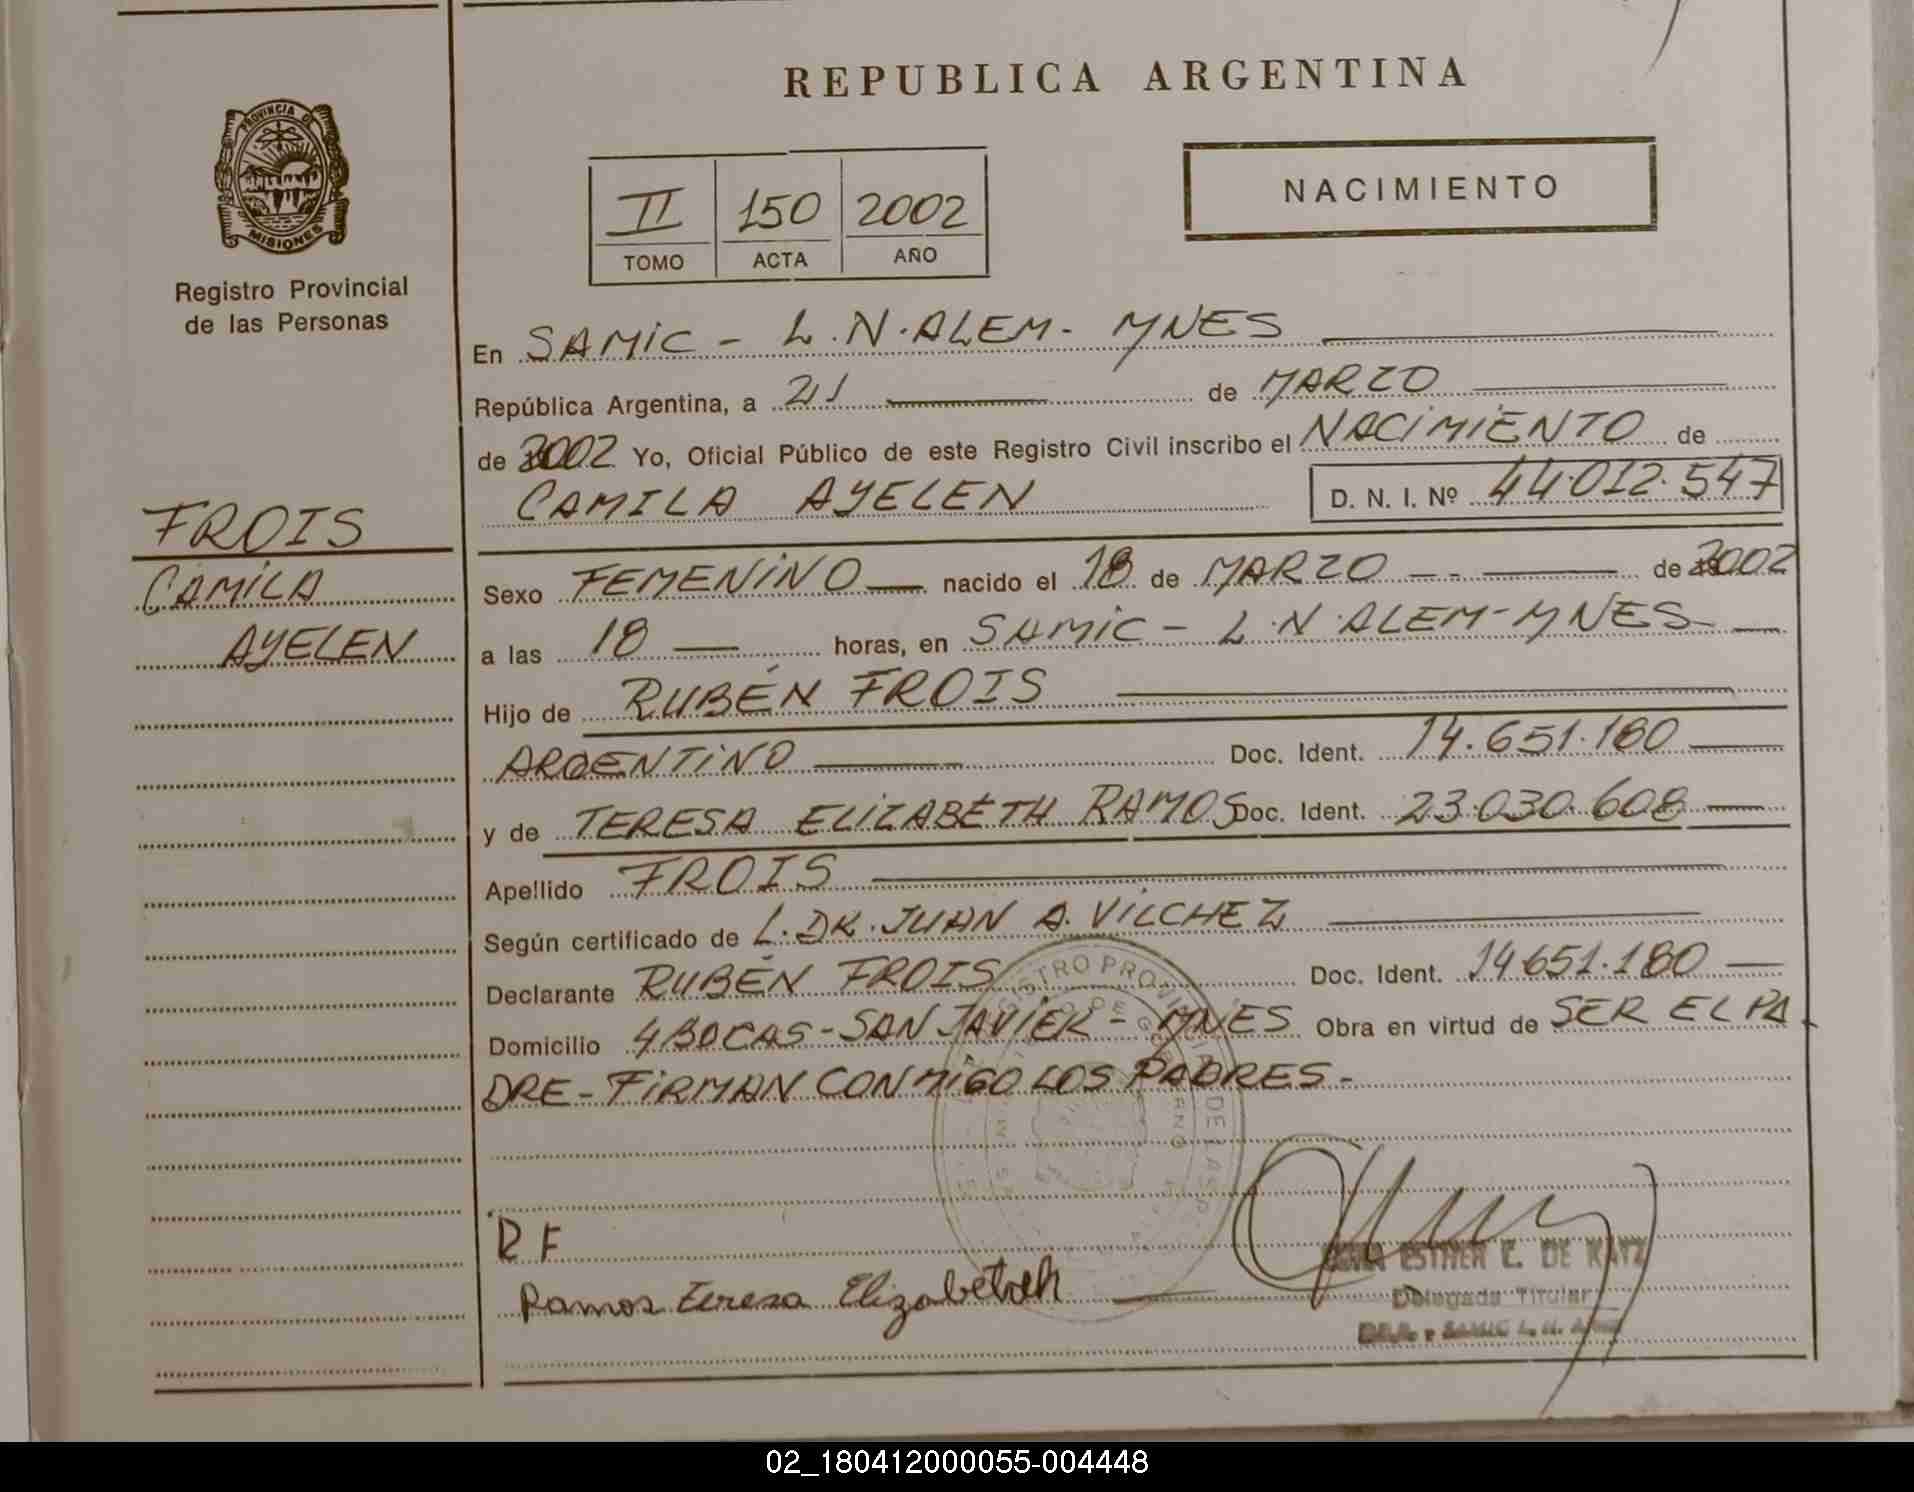 REPUBLICA ARGENTINA
PROVINCIA DE
MISIONES
Registro Provincial
de las Personas
II 150 2002
TOMO ACTA AÑO
NACIMIENTO
En SAMIC - L.N.ALEM- MNES
República Argentina, a 21 de MARZO
de 2002 Yo, Oficial Público de este Registro Civil inscribo el NACIMIENTO de
CAMILA AYELEN D. N. I. Nº 44.012.547
FROIS
CAMILA
AYELEN
Sexo FEMENINO nacido el 18 de MARZO -- de 2002
a las 18 horas, en SAMIC - L.N.ALEM-MNES
Hijo de RUBÉN FROIS
ARGENTINO Doc. Ident. 14.651.180
y de TERESA ELIZABETH RAMOS Doc. Ident. 23.030.608
Apellido FROIS
Según certificado de L.DR.JUAN A. VILCHEZ
Declarante RUBÉN FROIS Doc. Ident. 14651.180
Domicilio 4 BOCAS-SAN JAVIER-MNES Obra en virtud de SER EL PA
DRE-FIRMAN CONMIGO LOS PADRES-
REGISTRO PROVINCIAL DE LAS PER
R F
Ramos teresa Elizabeteh
ESTHER C. DE KATZ
Delegada Titular
02_180412000055-004448